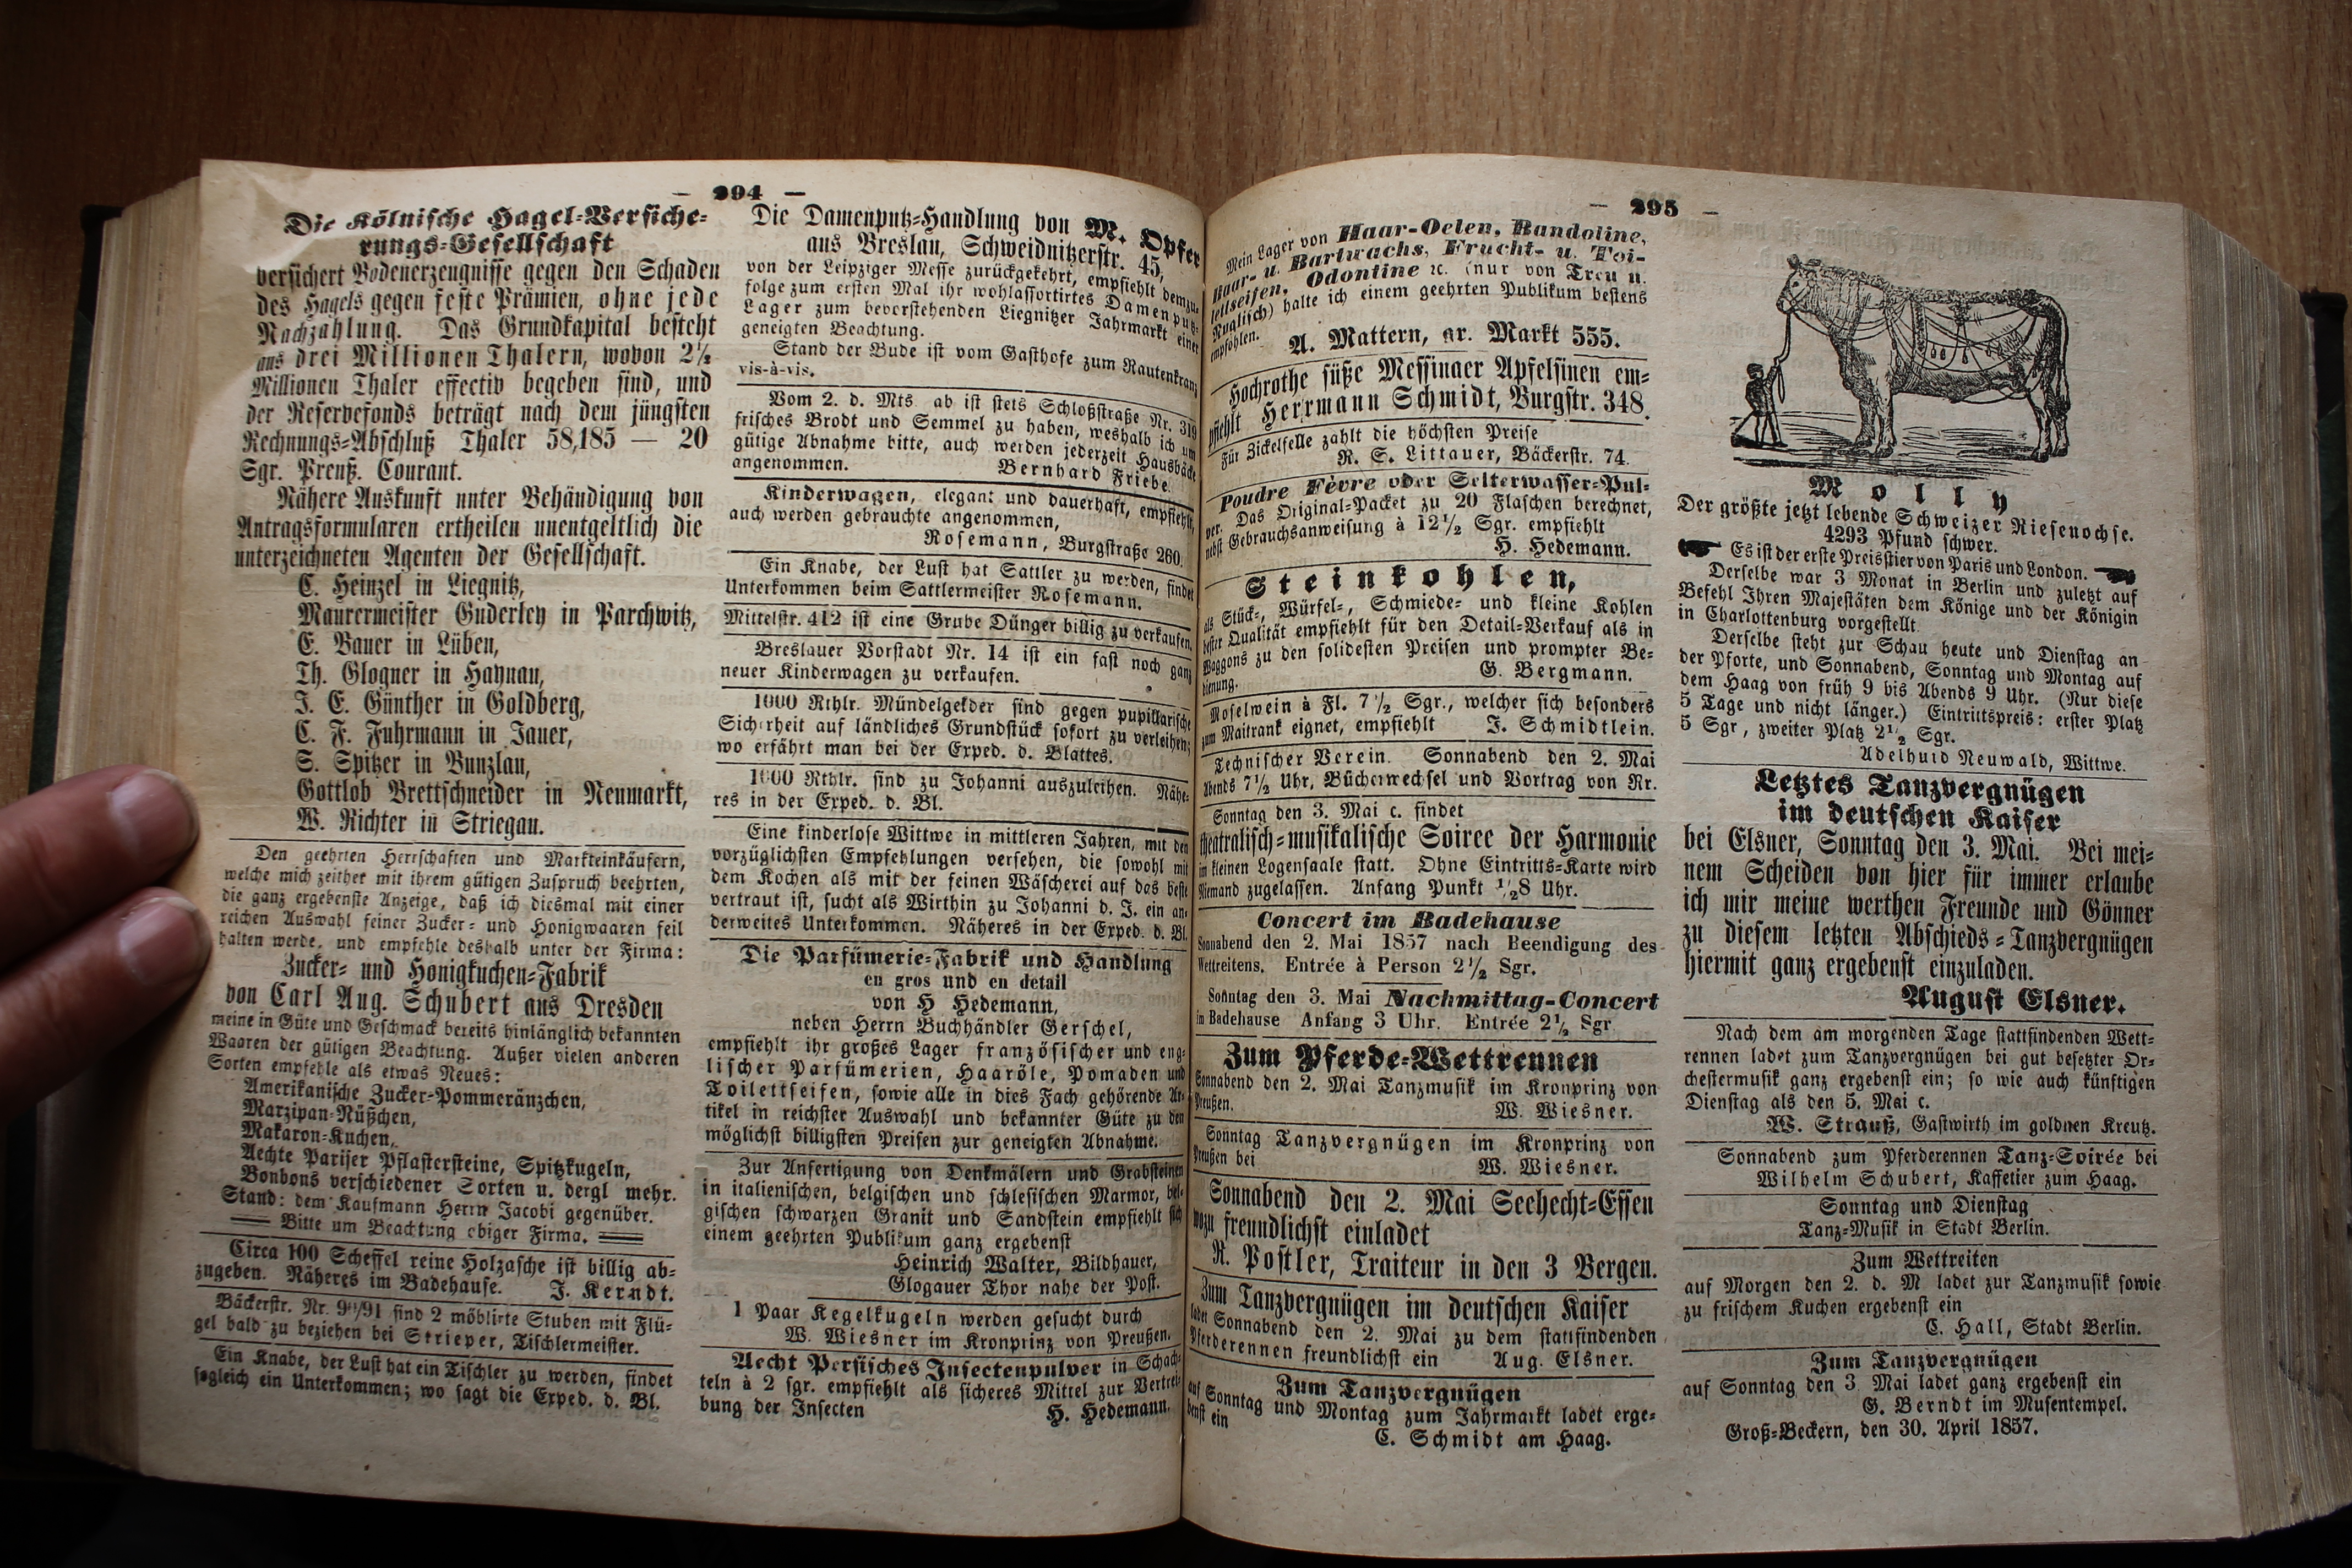 — 294 —
Die Kölnische Hagel-Versiche-
rungs-Gesellschaft
versichert Bodenerzeugnisse gegen den Schaden
des Hagels gegen feste Prämien, ohne jede
Nachzahlung. Das Grundkapital besteht
aus drei Millionen Thalern, wovon 2½
Millionen Thaler effectiv begeben sind, und
der Reservefonds beträgt nach dem jüngsten
Rechnungs-Abschluß Thaler 58,185 — 20
Sgr. Preuß. Courant.
Nähere Auskunft unter Behändigung von
Antragsformularen ertheilen unentgeltlich die
unterzeichneten Agenten der Gesellschaft.
C. Heinzel in Liegnitz,
Maurermeister Guderley in Parchwitz,
E. Bauer in Lüben,
Th. Glogner in Haynau,
J. E. Günther in Goldberg,
C. F. Fuhrmann in Jauer,
S. Spitzer in Bunzlau,
Gottlob Brettschneider in Neumarkt,
W. Richter in Striegau.
Den geehrten Herrschaften und Markteinkäufern,
welche mich zeither mit ihrem gütigen Zuspruch beehrten,
die ganz ergebenste Anzeige, daß ich diesmal mit einer
reichen Auswahl feiner Zucker- und Honigwaaren feil
halten werde, und empfehle deshalb unter der Firma:
Zucker- und Honigkuchen-Fabrik
von Carl Aug. Schubert aus Dresden
meine in Güte und Geschmack bereits hinlänglich bekannten
Waaren der gütigen Beachtung. Außer vielen anderen
Sorten empfehle als etwas Neues:
Amerikanische Zucker-Pommeränzchen,
Marzipan-Nüßchen,
Makaron-Kuchen,
Aechte Pariser Pflastersteine, Spitzkugeln,
Bonbons verschiedener Sorten u. dergl mehr.
Stand: dem Kaufmann Herrn Jacobi gegenüber.
Bitte um Beachtung obiger Firma.
Circa 100 Scheffel reine Holzasche ist billig ab-
zugeben. Näheres im Badehause. J. Kerndt.
Bäckerstr. Nr. 90/91 sind 2 möblirte Stuben mit Flü-
gel bald zu beziehen bei Strieper, Tischlermeister.
Ein Knabe, der Lust hat ein Tischler zu werden, findet
sogleich ein Unterkommen; wo sagt die Exped. d. Bl.
Die Damenputz-Handlung von M. Opfer
aus Breslau, Schweidnitzerstr. 45,
von der Leipziger Messe zurückgekehrt, empfiehlt demzu-
folge zum ersten Mal ihr wohlassortirtes Damenputz-
Lager zum bevorstehenden Liegnitzer Jahrmarkt einer
geneigten Beachtung.
Stand der Bude ist vom Gasthofe zum Rautenkranz
vis-à-vis.
Vom 2. d. Mts ab ist stets Schloßstraße Nr. 319
frisches Brodt und Semmel zu haben, weshalb ich um
gütige Abnahme bitte, auch werden jederzeit Hausbäcke
angenommen. Bernhard Friebe.
Kinderwagen, elegant und dauerhaft, empfiehlt,
auch werden gebrauchte angenommen,
Rosemann, Burgstraße 260.
Ein Knabe, der Lust hat Sattler zu werden, findet
Unterkommen beim Sattlermeister Rosemann.
Mittelstr. 412 ist eine Grube Dünger billig zu verkaufen.
Breslauer Vorstadt Nr. 14 ist ein fast noch ganz
neuer Kinderwagen zu verkaufen.
1000 Rthlr. Mündelgelder sind gegen pupillarische
Sicherheit auf ländliches Grundstück sofort zu verleihen;
wo erfährt man bei der Exped. d. Blattes.
1000 Rthlr. sind zu Johanni auszuleihen. Nähe-
res in der Exped. d. Bl.
Eine kinderlose Wittwe in mittleren Jahren, mit den
vorzüglichsten Empfehlungen versehen, die sowohl mit
dem Kochen als mit der feinen Wäscherei auf das beste
vertraut ist, sucht als Wirthin zu Johanni d. J. ein an-
derweites Unterkommen. Näheres in der Exped. d. Bl.
Die Parfümerie-Fabrik und Handlung
en gros und en detail
von H Hedemann,
neben Herrn Buchhändler Gerschel,
empfiehlt ihr großes Lager französischer und eng-
lischer Parfümerien, Haaröle, Pomaden und
Toilettseifen, sowie alle in dies Fach gehörende Ar-
tikel in reichster Auswahl und bekannter Güte zu den
möglichst billigsten Preisen zur geneigten Abnahme.
Zur Anfertigung von Denkmälern und Grabsteinen
in italienischen, belgischen und schlesischen Marmor, bel-
gischen schwarzen Granit und Sandstein empfiehlt sich
einem geehrten Publikum ganz ergebenst
Heinrich Walter, Bildhauer,
Glogauer Thor nahe der Post.
1 Paar Kegelkugeln werden gesucht durch
W. Wiesner im Kronprinz von Preußen.
Aecht Persisches Insectenpulver in Schach-
teln à 2 sgr. empfiehlt als sicheres Mittel zur Vertrei-
bung der Insecten H. Hedemann.
— 295 —
Mein Lager von Haar-Oelen, Bandoline,
Haar- u. Bartwachs, Frucht- u. Toi-
lettseifen, Odontine ꝛc. (nur von Treu u.
Nuglisch) halte ich einem geehrten Publikum bestens
empfohlen. A. Mattern, gr. Markt 555.
Hochrothe süße Messinaer Apfelsinen em-
pfiehlt Herrmann Schmidt, Burgstr. 348.
Für Zickelfelle zahlt die höchsten Preise
R. S. Littauer, Bäckerstr. 74.
Poudre Fèvre oder Selterwasser-Pul-
ver. Das Original-Packet zu 20 Flaschen berechnet,
nebst Gebrauchsanweisung à 12½ Sgr. empfiehlt
H. Hedemann.
Steinkohlen,
als Stück-, Würfel-, Schmiede- und kleine Kohlen
bester Qualität empfiehlt für den Detail-Verkauf als in
Waggons zu den solidesten Preisen und prompter Be-
dienung. G. Bergmann.
Moselwein à Fl. 7½ Sgr., welcher sich besonders
zum Maitrank eignet, empfiehlt J. Schmidtlein.
Technischer Verein. Sonnabend den 2. Mai
Abends 7½ Uhr, Bücherwechsel und Vortrag von Nr.
Sonntag den 3. Mai c. findet
theatralisch-musikalische Soiree der Harmonie
im kleinen Logensaale statt. Ohne Eintritts-Karte wird
Niemand zugelassen. Anfang Punkt ½8 Uhr.
Concert im Badehause
Sonnabend den 2. Mai 1857 nach Beendigung des
Wettreitens. Entrée à Person 2½ Sgr.
Sonntag den 3. Mai Nachmittag-Concert
im Badehause Anfang 3 Uhr. Entrée 2½ Sgr
Zum Pferde-Wettrennen
Sonnabend den 2. Mai Tanzmusik im Kronprinz von
Preußen. W. Wiesner.
Sonntag Tanzvergnügen im Kronprinz von
Preußen bei W. Wiesner.
Sonnabend den 2. Mai Seehecht-Essen
wozu freundlichst einladet
R. Postler, Traiteur in den 3 Bergen.
Zum Tanzvergnügen im deutschen Kaiser
ladet Sonnabend den 2. Mai zu dem stattfindenden
Pferderennen freundlichst ein Aug. Elsner.
Zum Tanzvergnügen
auf Sonntag und Montag zum Jahrmarkt ladet erge-
benst ein C. Schmidt am Haag.
Molly
Der größte jetzt lebende Schweizer Riesenochse.
4293 Pfund schwer.
Es ist der erste Preisstier von Paris und London.
Derselbe war 3 Monat in Berlin und zuletzt auf
Befehl Ihren Majestäten dem Könige und der Königin
in Charlottenburg vorgestellt
Derselbe steht zur Schau heute und Dienstag an
der Pforte, und Sonnabend, Sonntag und Montag auf
dem Haag von früh 9 bis Abends 9 Uhr. (Nur diese
5 Tage und nicht länger.) Eintrittspreis: erster Platz
5 Sgr, zweiter Platz 2½ Sgr.
Adelhuid Neuwald, Wittwe.
Letztes Tanzvergnügen
im deutschen Kaiser
bei Elsner, Sonntag den 3. Mai. Bei mei-
nem Scheiden von hier für immer erlaube
ich mir meine werthen Freunde und Gönner
zu diesem letzten Abschieds-Tanzvergnügen
hiermit ganz ergebenst einzuladen.
August Elsner.
Nach dem am morgenden Tage stattfindenden Wett-
rennen ladet zum Tanzvergnügen bei gut besetzter Or-
chestermusik ganz ergebenst ein; so wie auch künftigen
Dienstag als den 5. Mai c.
W. Strauß, Gastwirth im goldnen Kreutz.
Sonnabend zum Pferderennen Tanz-Soirée bei
Wilhelm Schubert, Kaffetier zum Haag.
Sonntag und Dienstag
Tanz-Musik in Stadt Berlin.
Zum Wettreiten
auf Morgen den 2. d. M ladet zur Tanzmusik sowie
zu frischem Kuchen ergebenst ein
C. Hall, Stadt Berlin.
Zum Tanzvergnügen
auf Sonntag den 3 Mai ladet ganz ergebenst ein
G. Berndt im Musentempel.
Groß-Beckern, den 30. April 1857.